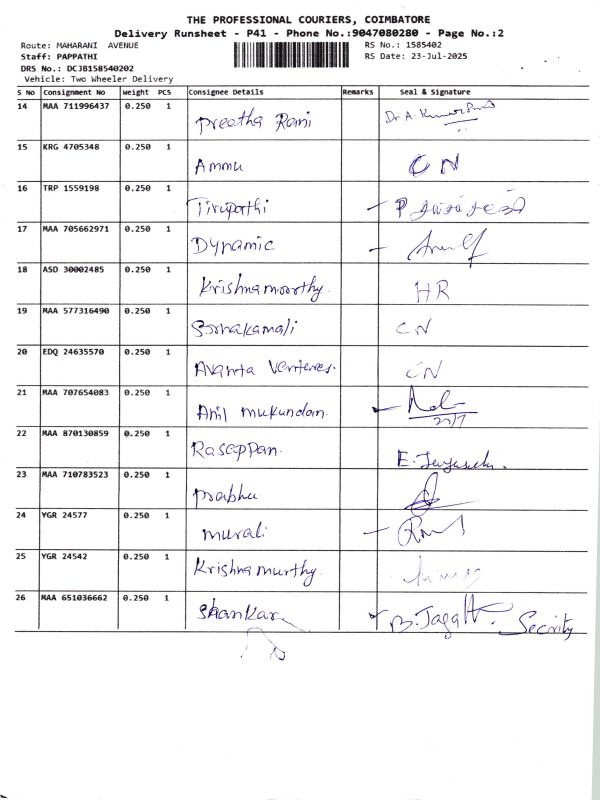 THE PROFESSIONAL COURIERS, COIMBATORE
Delivery Runsheet - P41 - Phone No.:9047080280 - Page No.:2
Route: MAHARANI AVENUE RS No.: 1585402
Staff: PAPPATHI RS Date: 23-Jul-2025
DRS No.: DCJB158540202
Vehicle: Two Wheeler Delivery
S No Consignment No Weight PCS Consignee Details Remarks Seal & Signature
14 MAA 711996437 0.250 1 Preetha Rani Dr A.
15 KRG 4705348 0.250 1 Ammu CN
16 TRP 1559198 0.250 1 Tirupathi
17 MAA 705662971 0.250 1 Dynamic
18 ASD 30002485 0.250 1 Krishnamoorthy. HR
19 MAA 577316490 0.250 1 Sornakamali CN
20 EDQ 24635570 0.250 1 Avanta CN
21 MAA 707654083 0.250 1 Anil mukundan.
22 MAA 870130859 0.250 1 Rasappan. E.
23 MAA 710783523 0.250 1 Prabhu
24 YGR 24577 0.250 1 murali
25 YGR 24542 0.250 1 Krishnamurthy.
26 MAA 651036662 0.250 1 Shankar B. Secrity